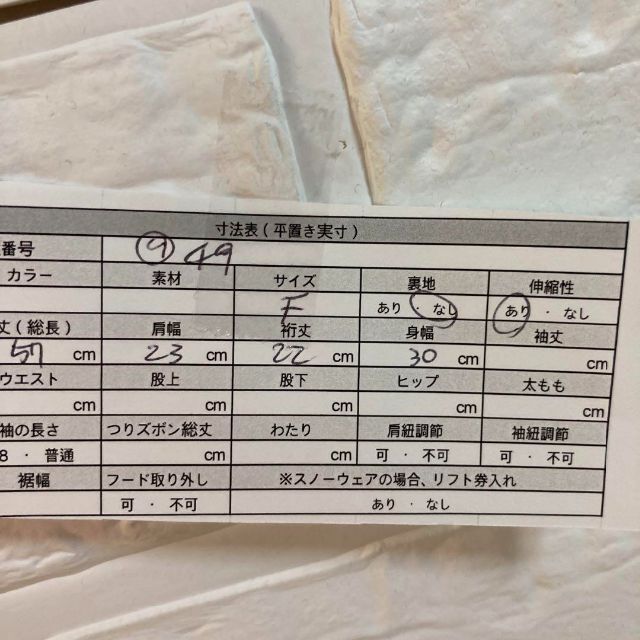 寸法表(平置き実寸)
番号 ⑨ 49
カラー 素材 サイズ 裏地 伸縮性
F あり ・ なし あり ・ なし
丈(総長) 肩幅 裄丈 身幅 袖丈
57 cm 23 cm 22 cm 30 cm cm
ウエスト 股上 股下 ヒップ 太もも
cm cm cm cm cm
袖の長さ つりズボン総丈 わたり 肩紐調節 袖紐調節
8 ・ 普通 cm cm 可 ・ 不可 可 ・ 不可
裾幅 フード取り外し ※スノーウェアの場合、リフト券入れ
可 ・ 不可 あり ・ なし